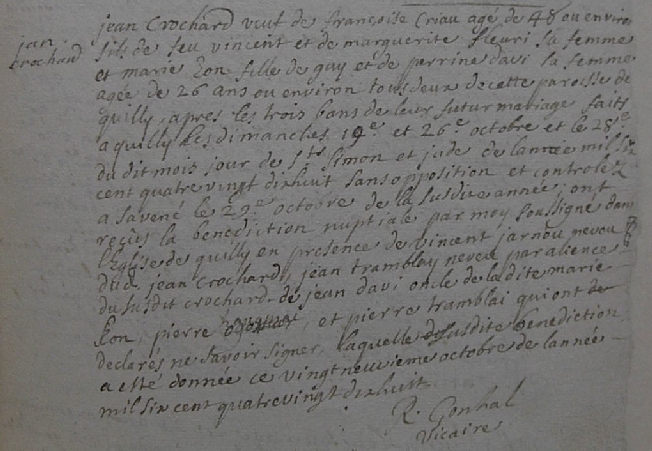 jan
crochard
jean Crochard veuf de françoise Criau agé de 48 ou enviro
fils de feu vincent et de marguerite fleuri sa femme
et marie Eon fille de guy et de perrine davi sa femme
agée de 26 ans ou environ tous deux de cette paroisse de
quilly, apres les trois bans de leur futur mariage faits
a quilly les dimanches 19e et 26e octobre et le 28e
du dit mois jour de st Simon et jude de lannee mil six
cent quatre vingt dixhuit sans opposition et controlez
a savené le 29e octobre de la susdite année, ont
reçus la benediction nuptiale par moy soussigné dans
l'Eglise de quilly en presence de vincent jarnou neveu
dud. jean Crochard, jean tramblay neveu par alience
du susdit crochard. de jean davi oncle de la dite marie
Eon, pierre et pierre tramblai qui ont de
declarés ne savoir signer, laquelle susdite benediction
a esté donnée ce vingt neuvieme octobre de lannée
mil six cent quatre vingt dixhuit.
R. Gonhal
vicaire